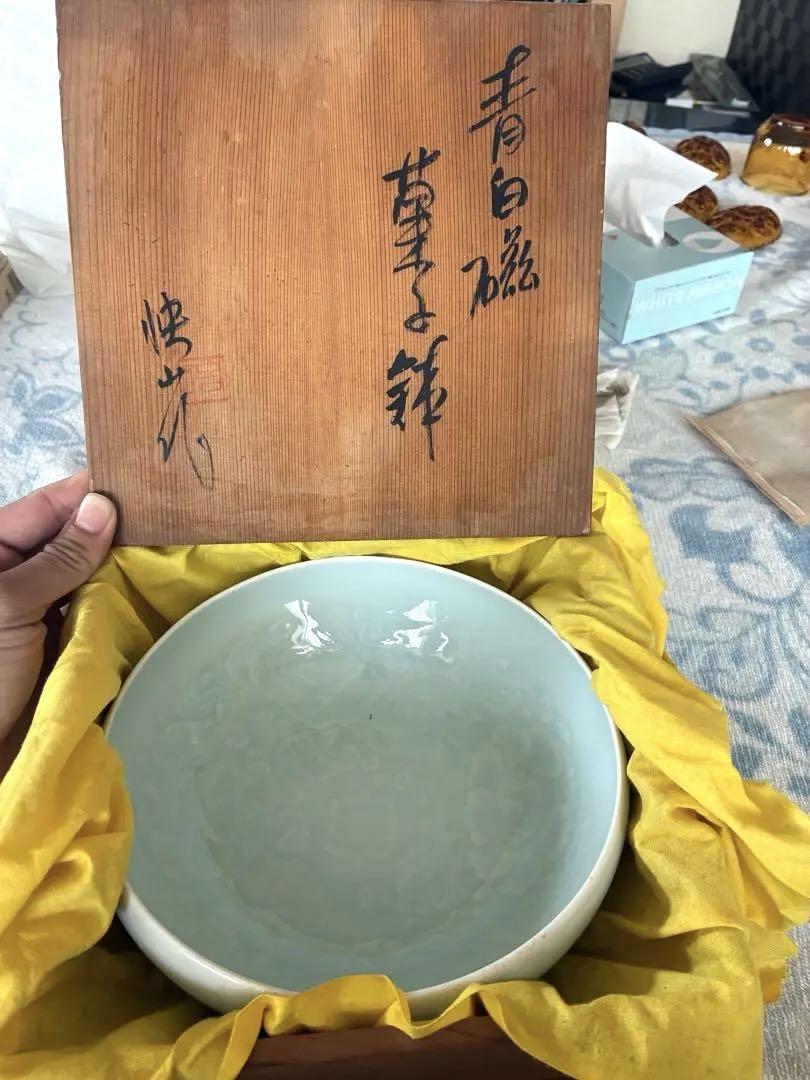 青白磁
菓子鉢
快山作
WHITE RIBBON